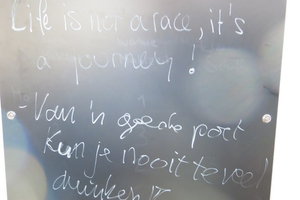 Life is not a race, it's
a journey!
- Van 'n goede port
Kun je nooit te veel
drinken